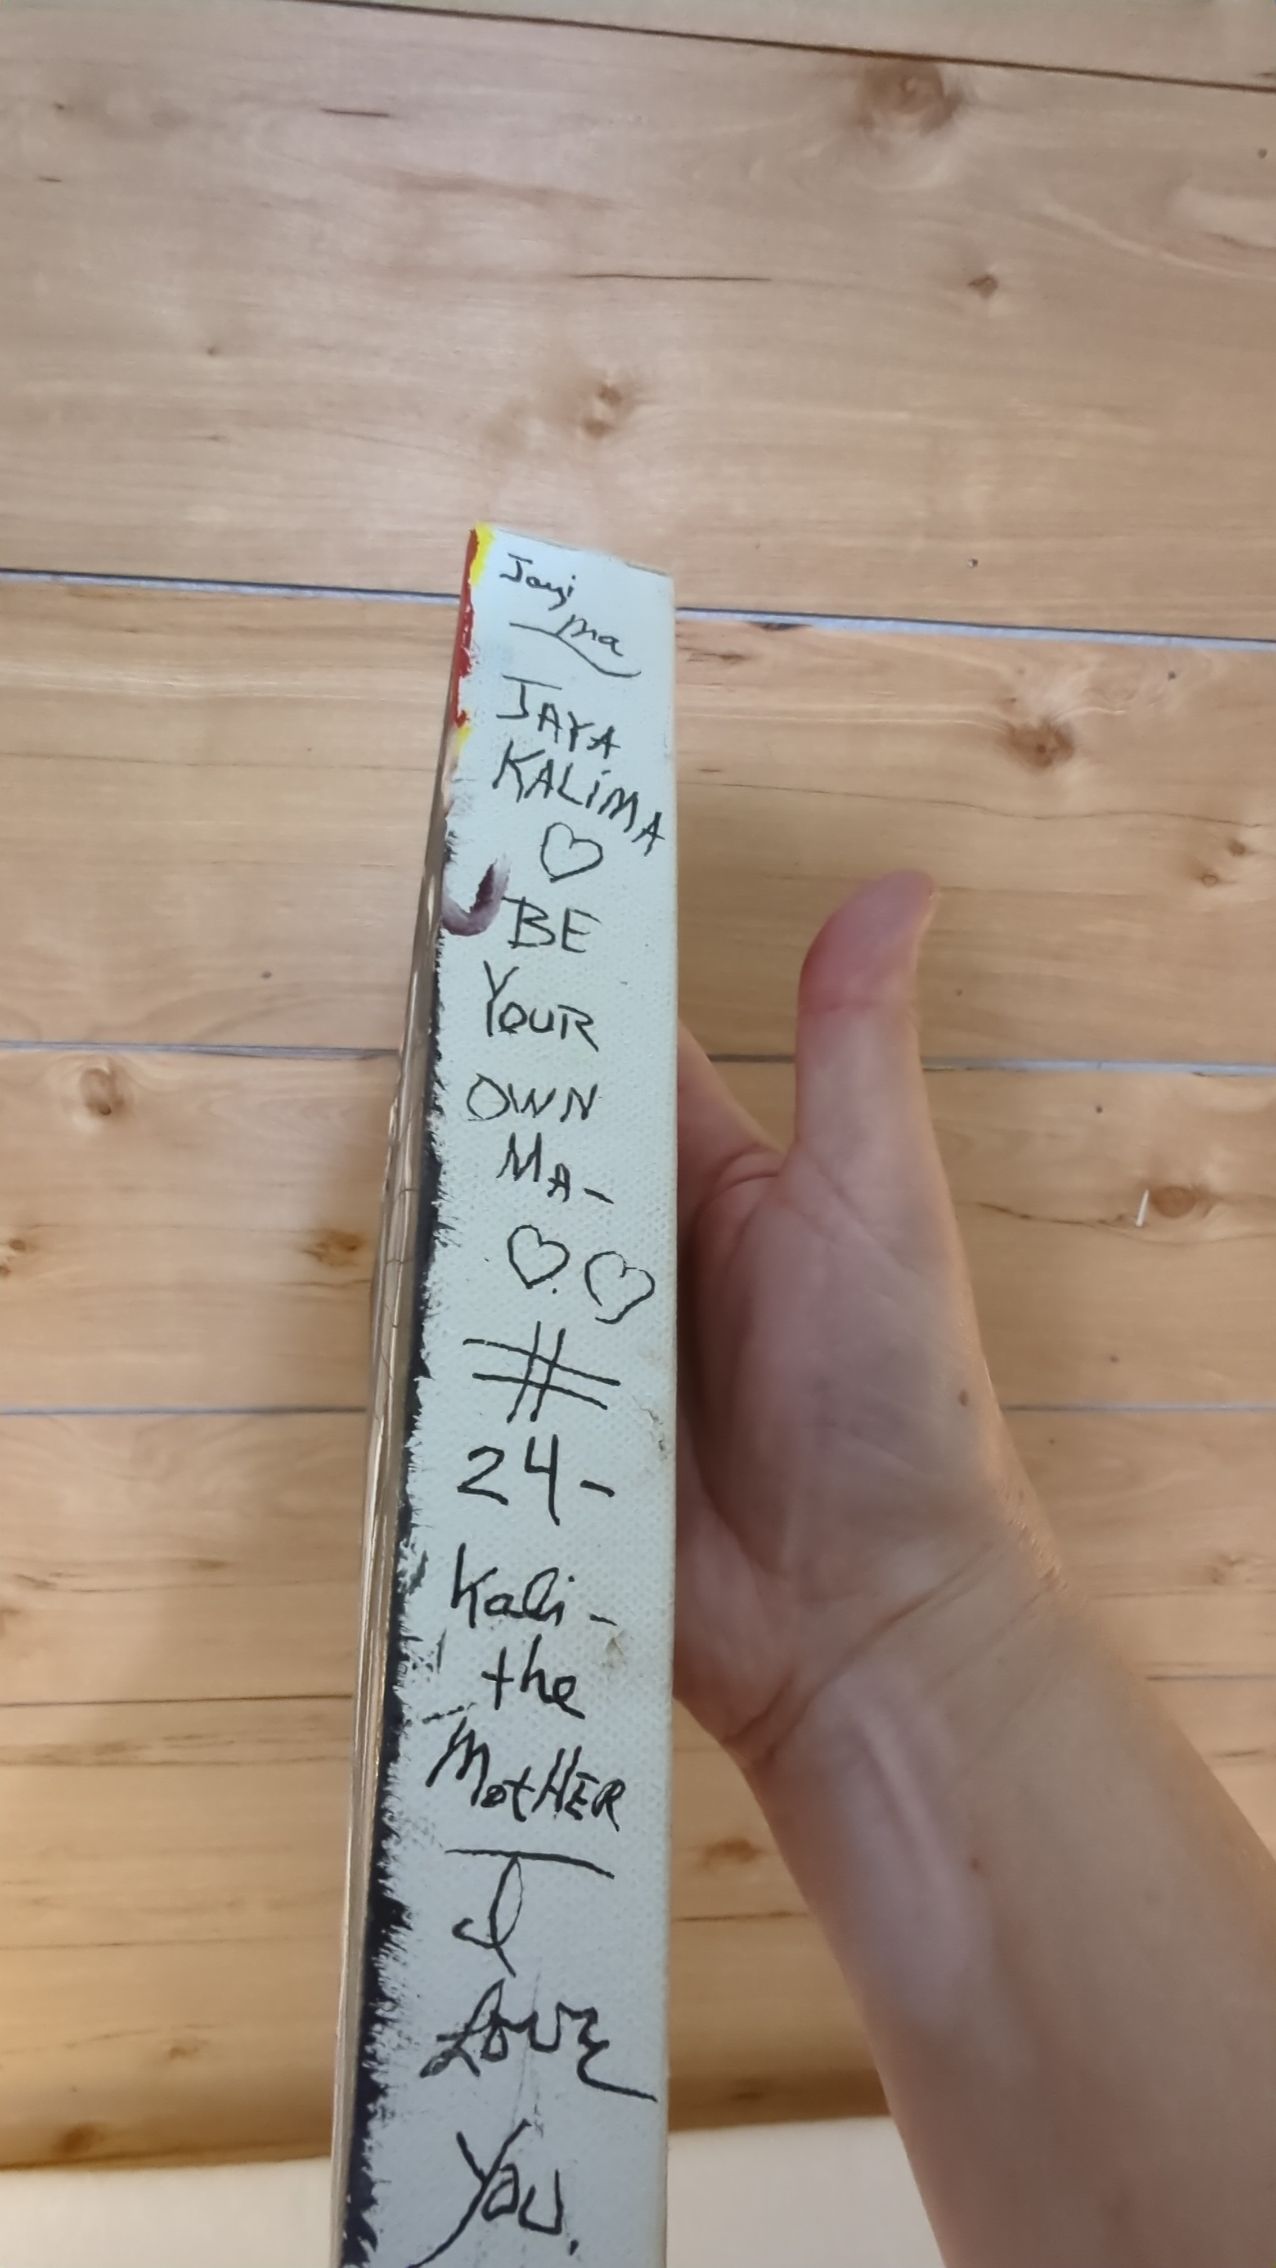 Jayi
Ma
JAYA
KALiMA
BE
YOUR
OWN
MA-
#
24-
Kali-
the
MotHER
I
Love
You.